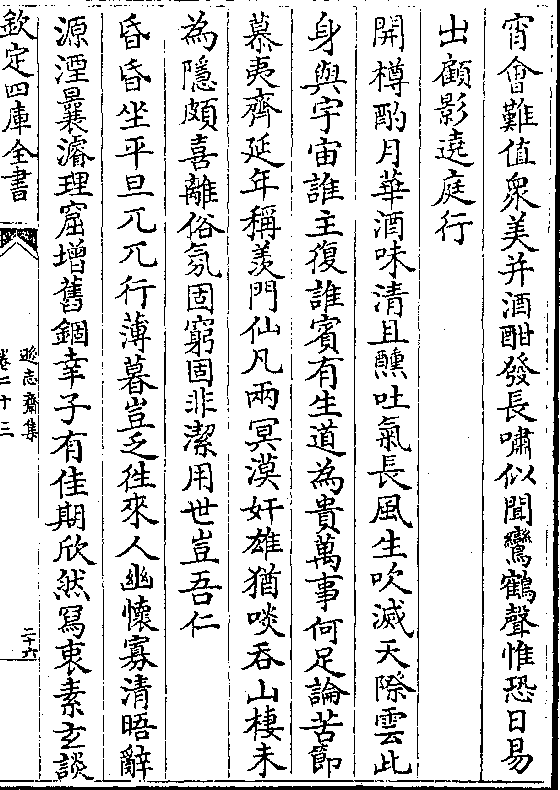 宵會難值衆美并酒酣發長嘯似聞鸞鶴聲惟恐日易
出顧影遶庭行
開樽酌月華酒味清且醺吐氣長風生吹滅天際雲此
身與宇宙誰主復誰賓有生道為貴萬事何足論苦節
慕夷齊延年稱羨門仙凡兩冥漠奸雄猶啖吞山棲未
為隱頗喜離俗氛固窮固非潔用世豈吾仁
昏昏坐平旦兀兀行薄暮豈乏徃來人幽懷寡清晤辭
源湮曩濬理窟增舊錮幸子有佳期欣然寫衷素玄談
欽定四庫全書
遜志齋集
卷二十三
二十六